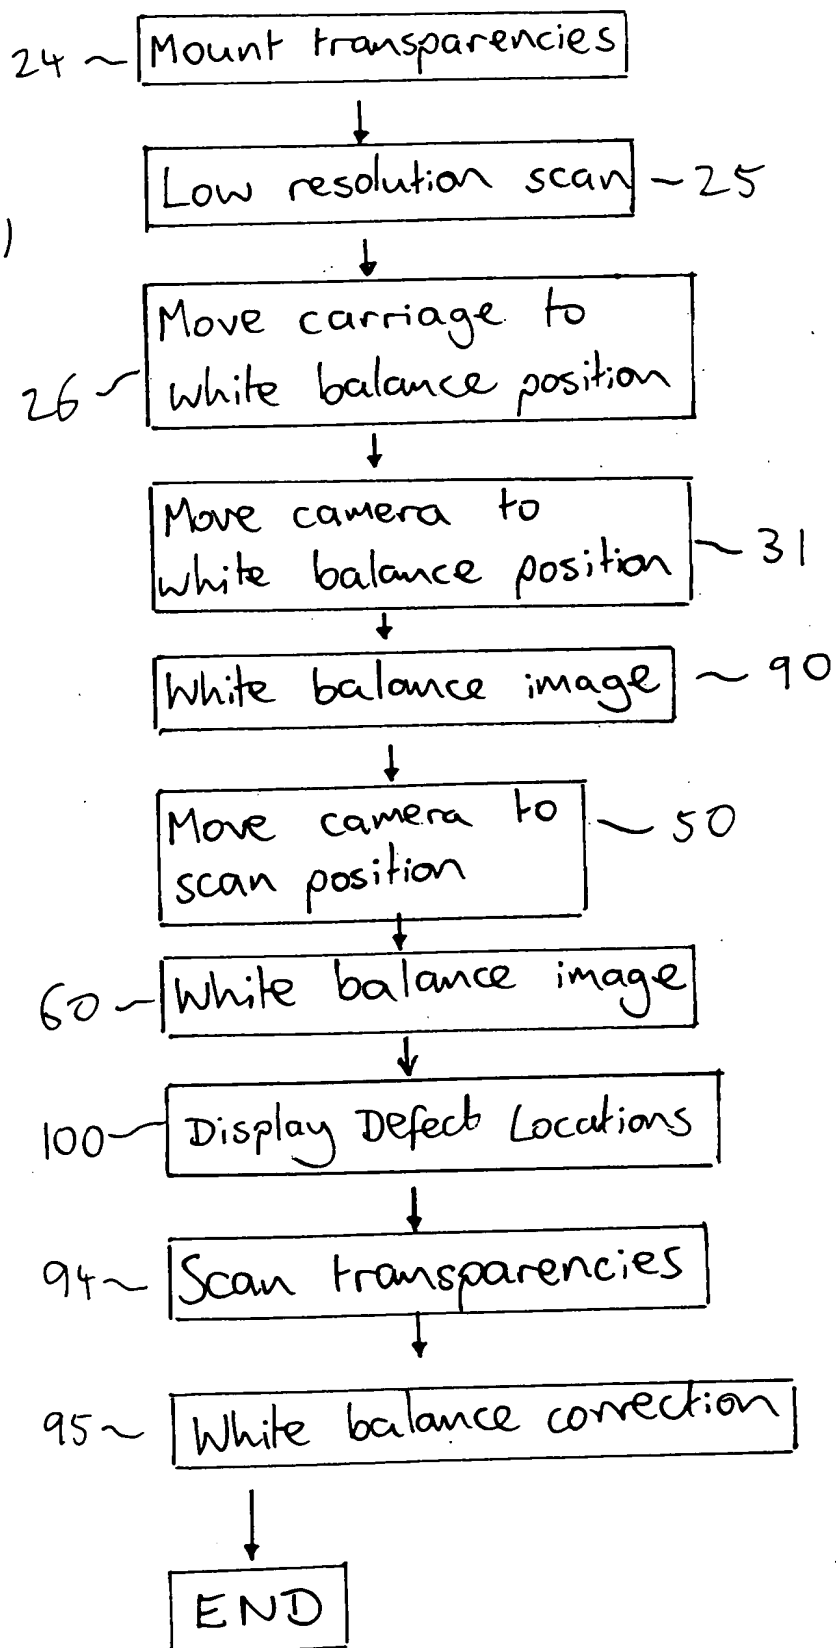 24 Mount transparencies
Low resolution scan 25
)
Move carriage to
26 white balance position
Move camera to
white balance position 31
White balance image 90
Move camera to 50
scan position
60 White balance image
100 Display Defect Locations
94 Scan transparencies
95 White balance correction
END